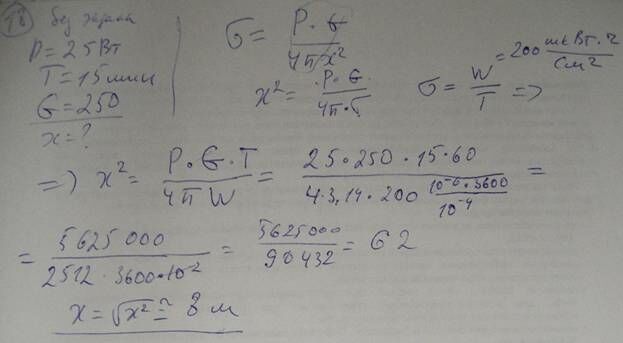 без экрана
P = 25 Вт
T = 15 мин
G = 250
x = ?
σ = P · G / 4π x²
x² = P · G / 4π · σ
σ = W / T = 200 мкВт · ч / см² =>
=> x² = P · G · T / 4π W = 25 · 250 · 15 · 60 / 4 · 3,14 · 200 10⁻⁶ · 3600 / 10⁻⁴ =
= 5625000 / 2512 · 3600 · 10⁻² = 5625000 / 90432 = 62
x = √x² ≈ 8 м